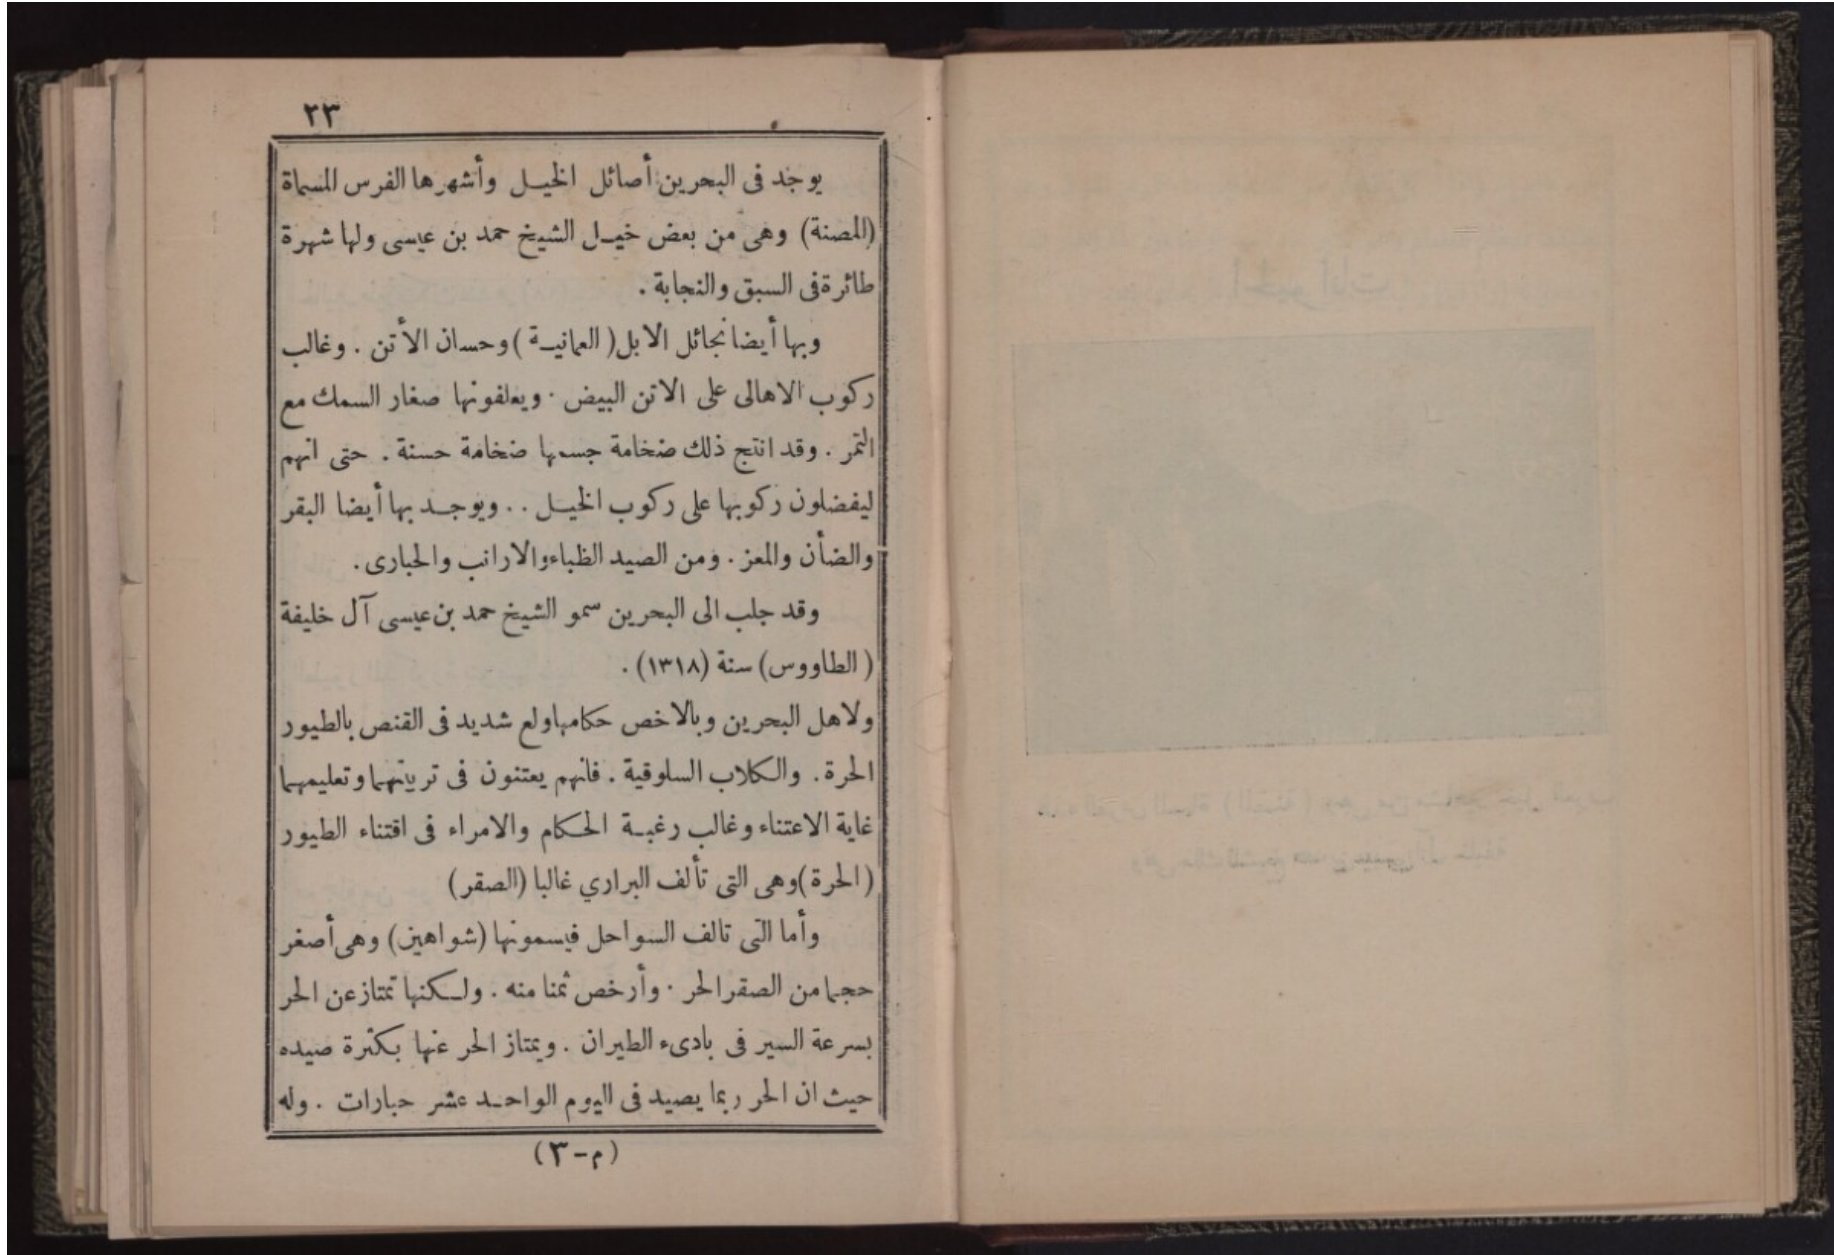 ٢٣
يوجد فى البحرين أصائل الخيل وأشهرها الفرس المسماة
(المصنة) وهى من بعض خيل الشيخ حمد بن عيسى ولها شهرة
طائرة فى السبق والنجابة .
وبها أيضا نجائل الابل (العمانية) وحسان الأتن . وغالب
ركوب الاهالى على الاتن البيض . ويعلفونها صغار السمك مع
التمر . وقد انتج ذلك ضخامة جسمها ضخامة حسنة . حتى انهم
ليفضلون ركوبها على ركوب الخيل . . ويوجد بها أيضا البقر
والضأن والمعز . ومن الصيد الظباء والارانب والحبارى .
وقد جلب الى البحرين سمو الشيخ حمد بن عيسى آل خليفة
(الطاووس) سنة (١٣١٨) .
ولاهل البحرين وبالاخص حكامها ولع شديد فى القنص بالطيور
الحرة . والكلاب السلوقية . فانهم يعتنون فى تربيتهما وتعليمهما
غاية الاعتناء وغالب رغبة الحكام والامراء فى اقتناء الطيور
(الحرة) وهى التى تألف البراري غالبا (الصقر)
وأما التى تالف السواحل فيسمونها (شواهين) وهى أصغر
حجما من الصقر الحر . وأرخص ثمنا منه . ولكنها تمتاز عن الحر
بسرعة السير فى بادىء الطيران . ويمتاز الحر عنها بكثرة صيده
حيث ان الحر ربما يصيد فى اليوم الواحد عشر حبارات . وله
(م-٣)